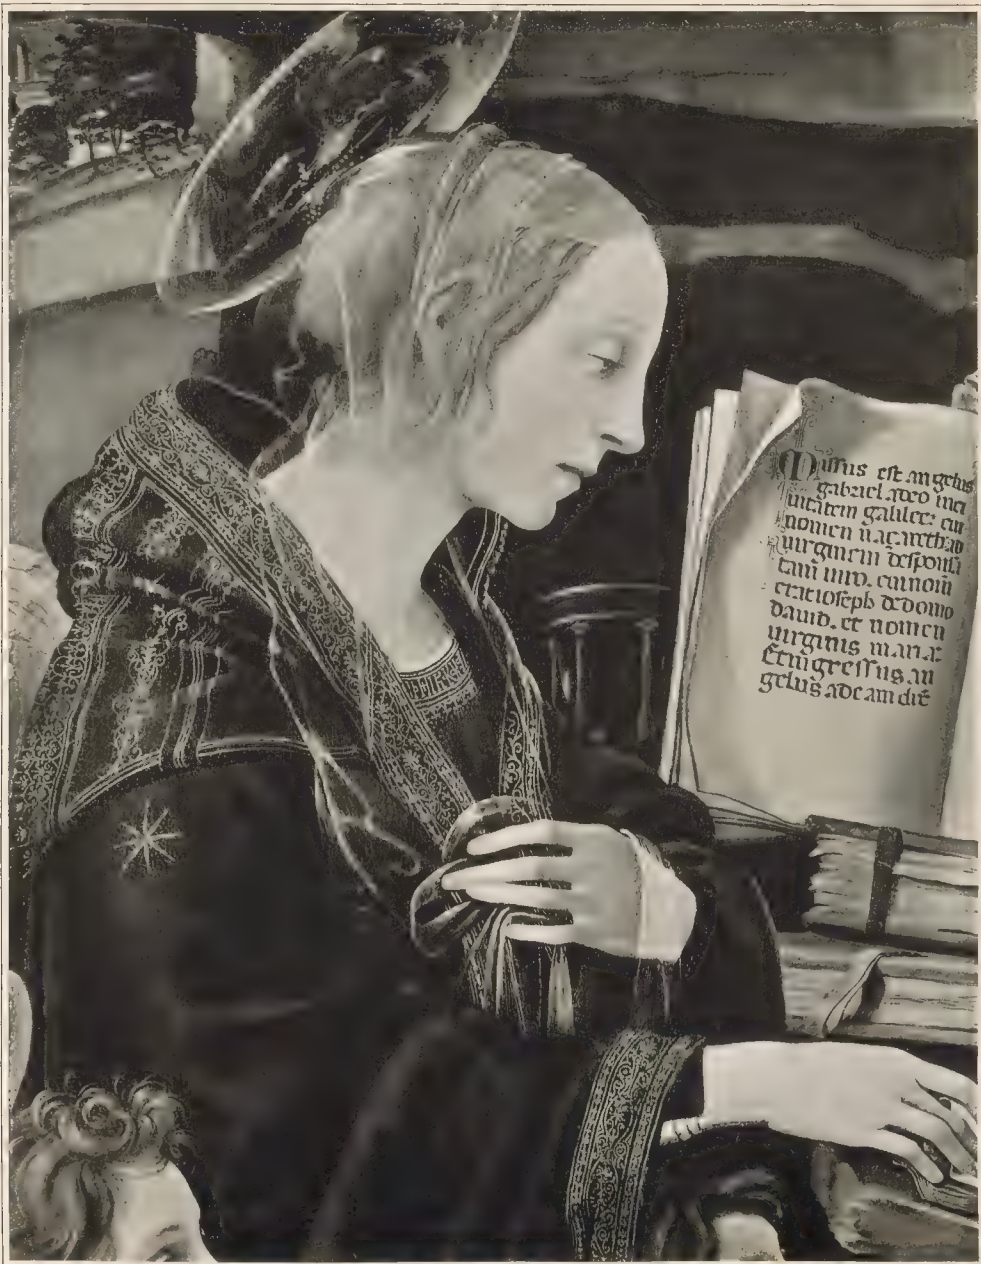 Missus est angelus
gabriel adeo inci
uitatem galilee: cui
nomen nazareth ad
uirginem desponsa
tam uiro. cui nom
erat ioseph de domo
dauid. et nomen
uirginis maria:
Et ingressus an
gelus ad eam dix